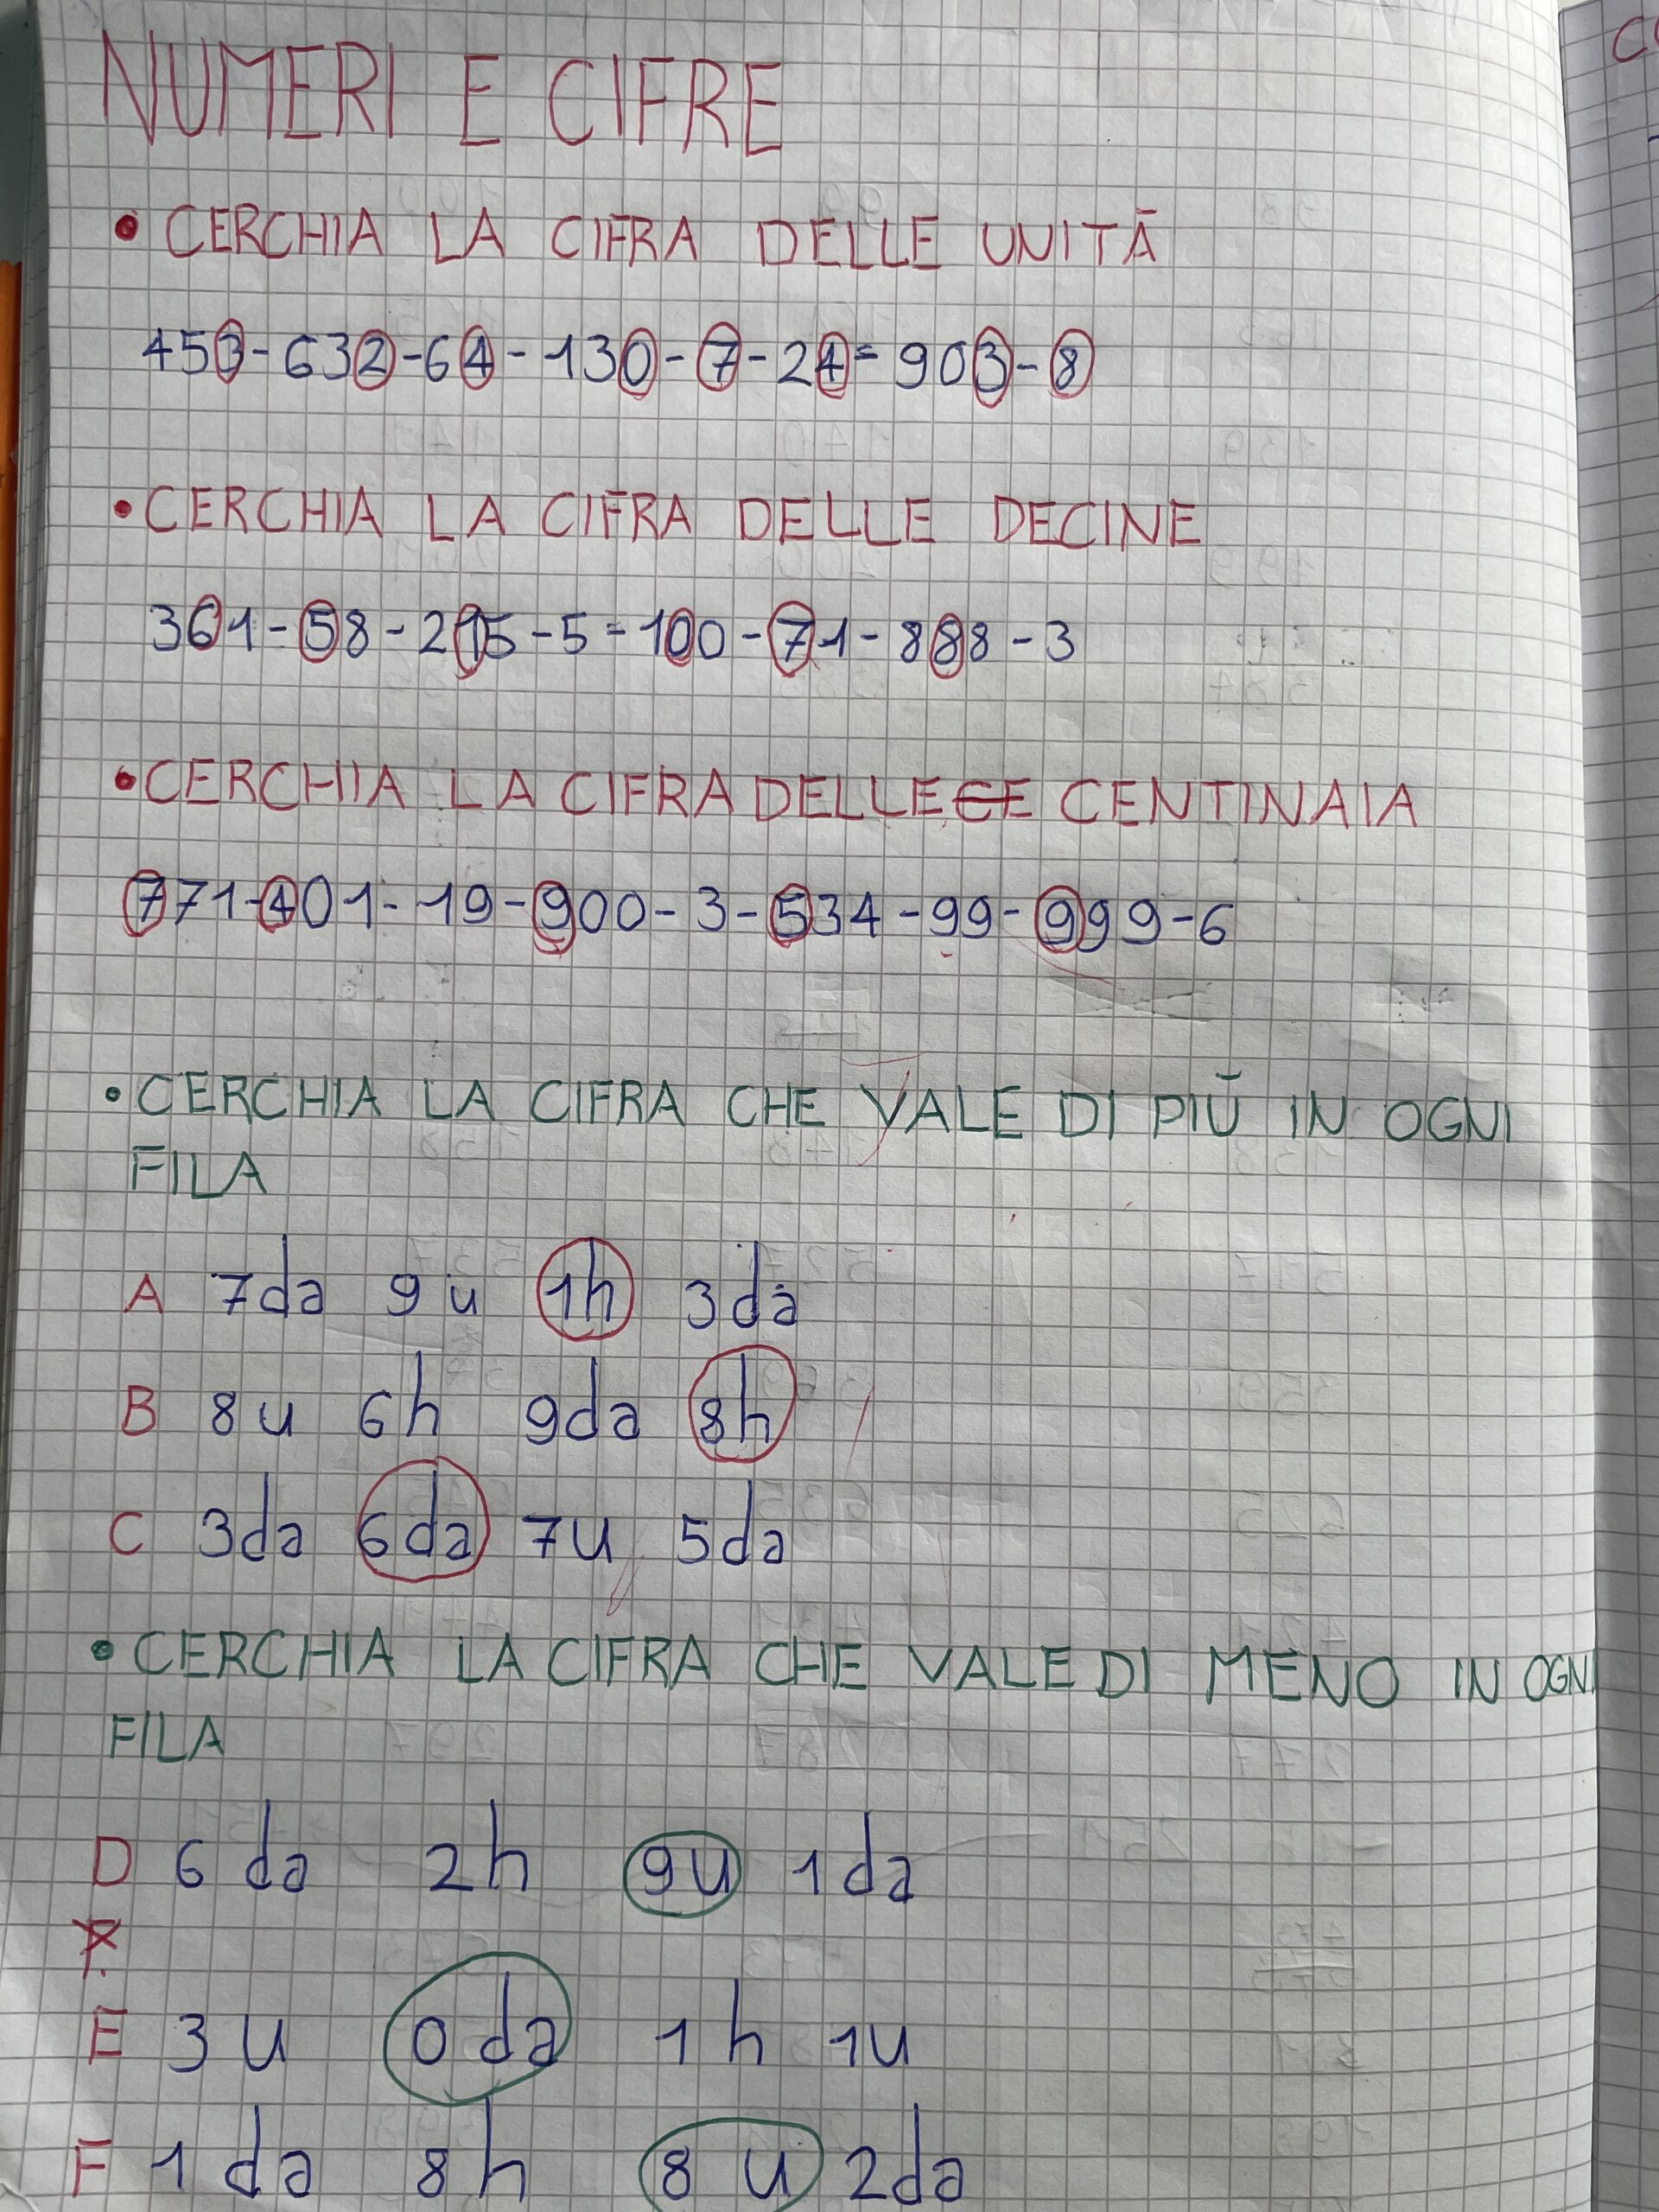 NUMERI E CIFRE
• CERCHIA LA CIFRA DELLE UNITÀ
453 - 632 - 64 - 130 - 7 - 24 = 903 - 8
• CERCHIA LA CIFRA DELLE DECINE
361 - 58 - 215 - 5 = 100 - 71 - 888 - 3
• CERCHIA LA CIFRA DELLE CE CENTINAIA
771 - 401 - 19 - 900 - 3 - 534 - 99 - 999 - 6
• CERCHIA LA CIFRA CHE VALE DI PIÙ IN OGNI
FILA
A 7da 9u 1h 3da
B 8u 6h 9da 8h
C 3da 6da 7u 5da
• CERCHIA LA CIFRA CHE VALE DI MENO IN OGNI
FILA
D 6da 2h 9u 1da
E 3u 0da 1h 1u
F 1da 8h 8u 2da